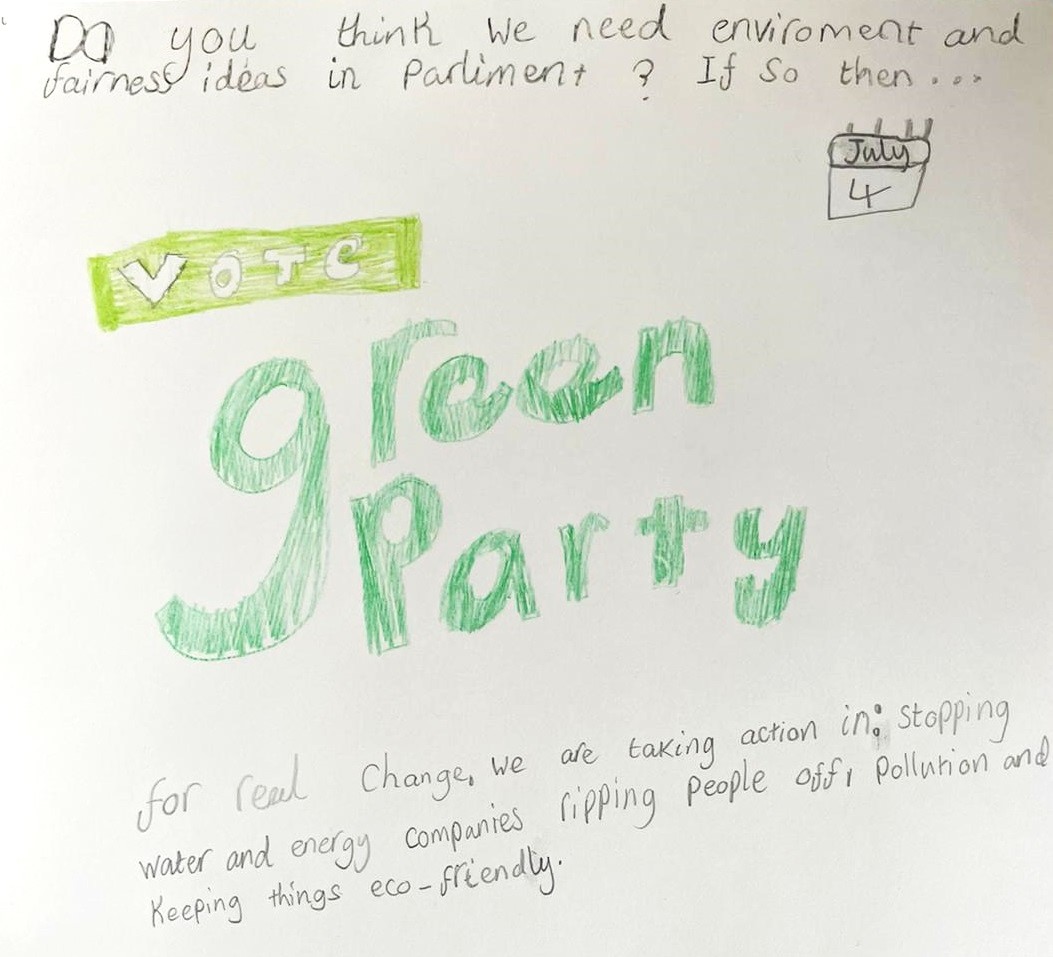 Do you think we need enviroment and
fairness ideas in Parliment ? If so then...
July
4
VOTE
green
Party
for real change, we are taking action in: stopping
water and energy companies ripping people off, pollution and
keeping things eco-friendly.